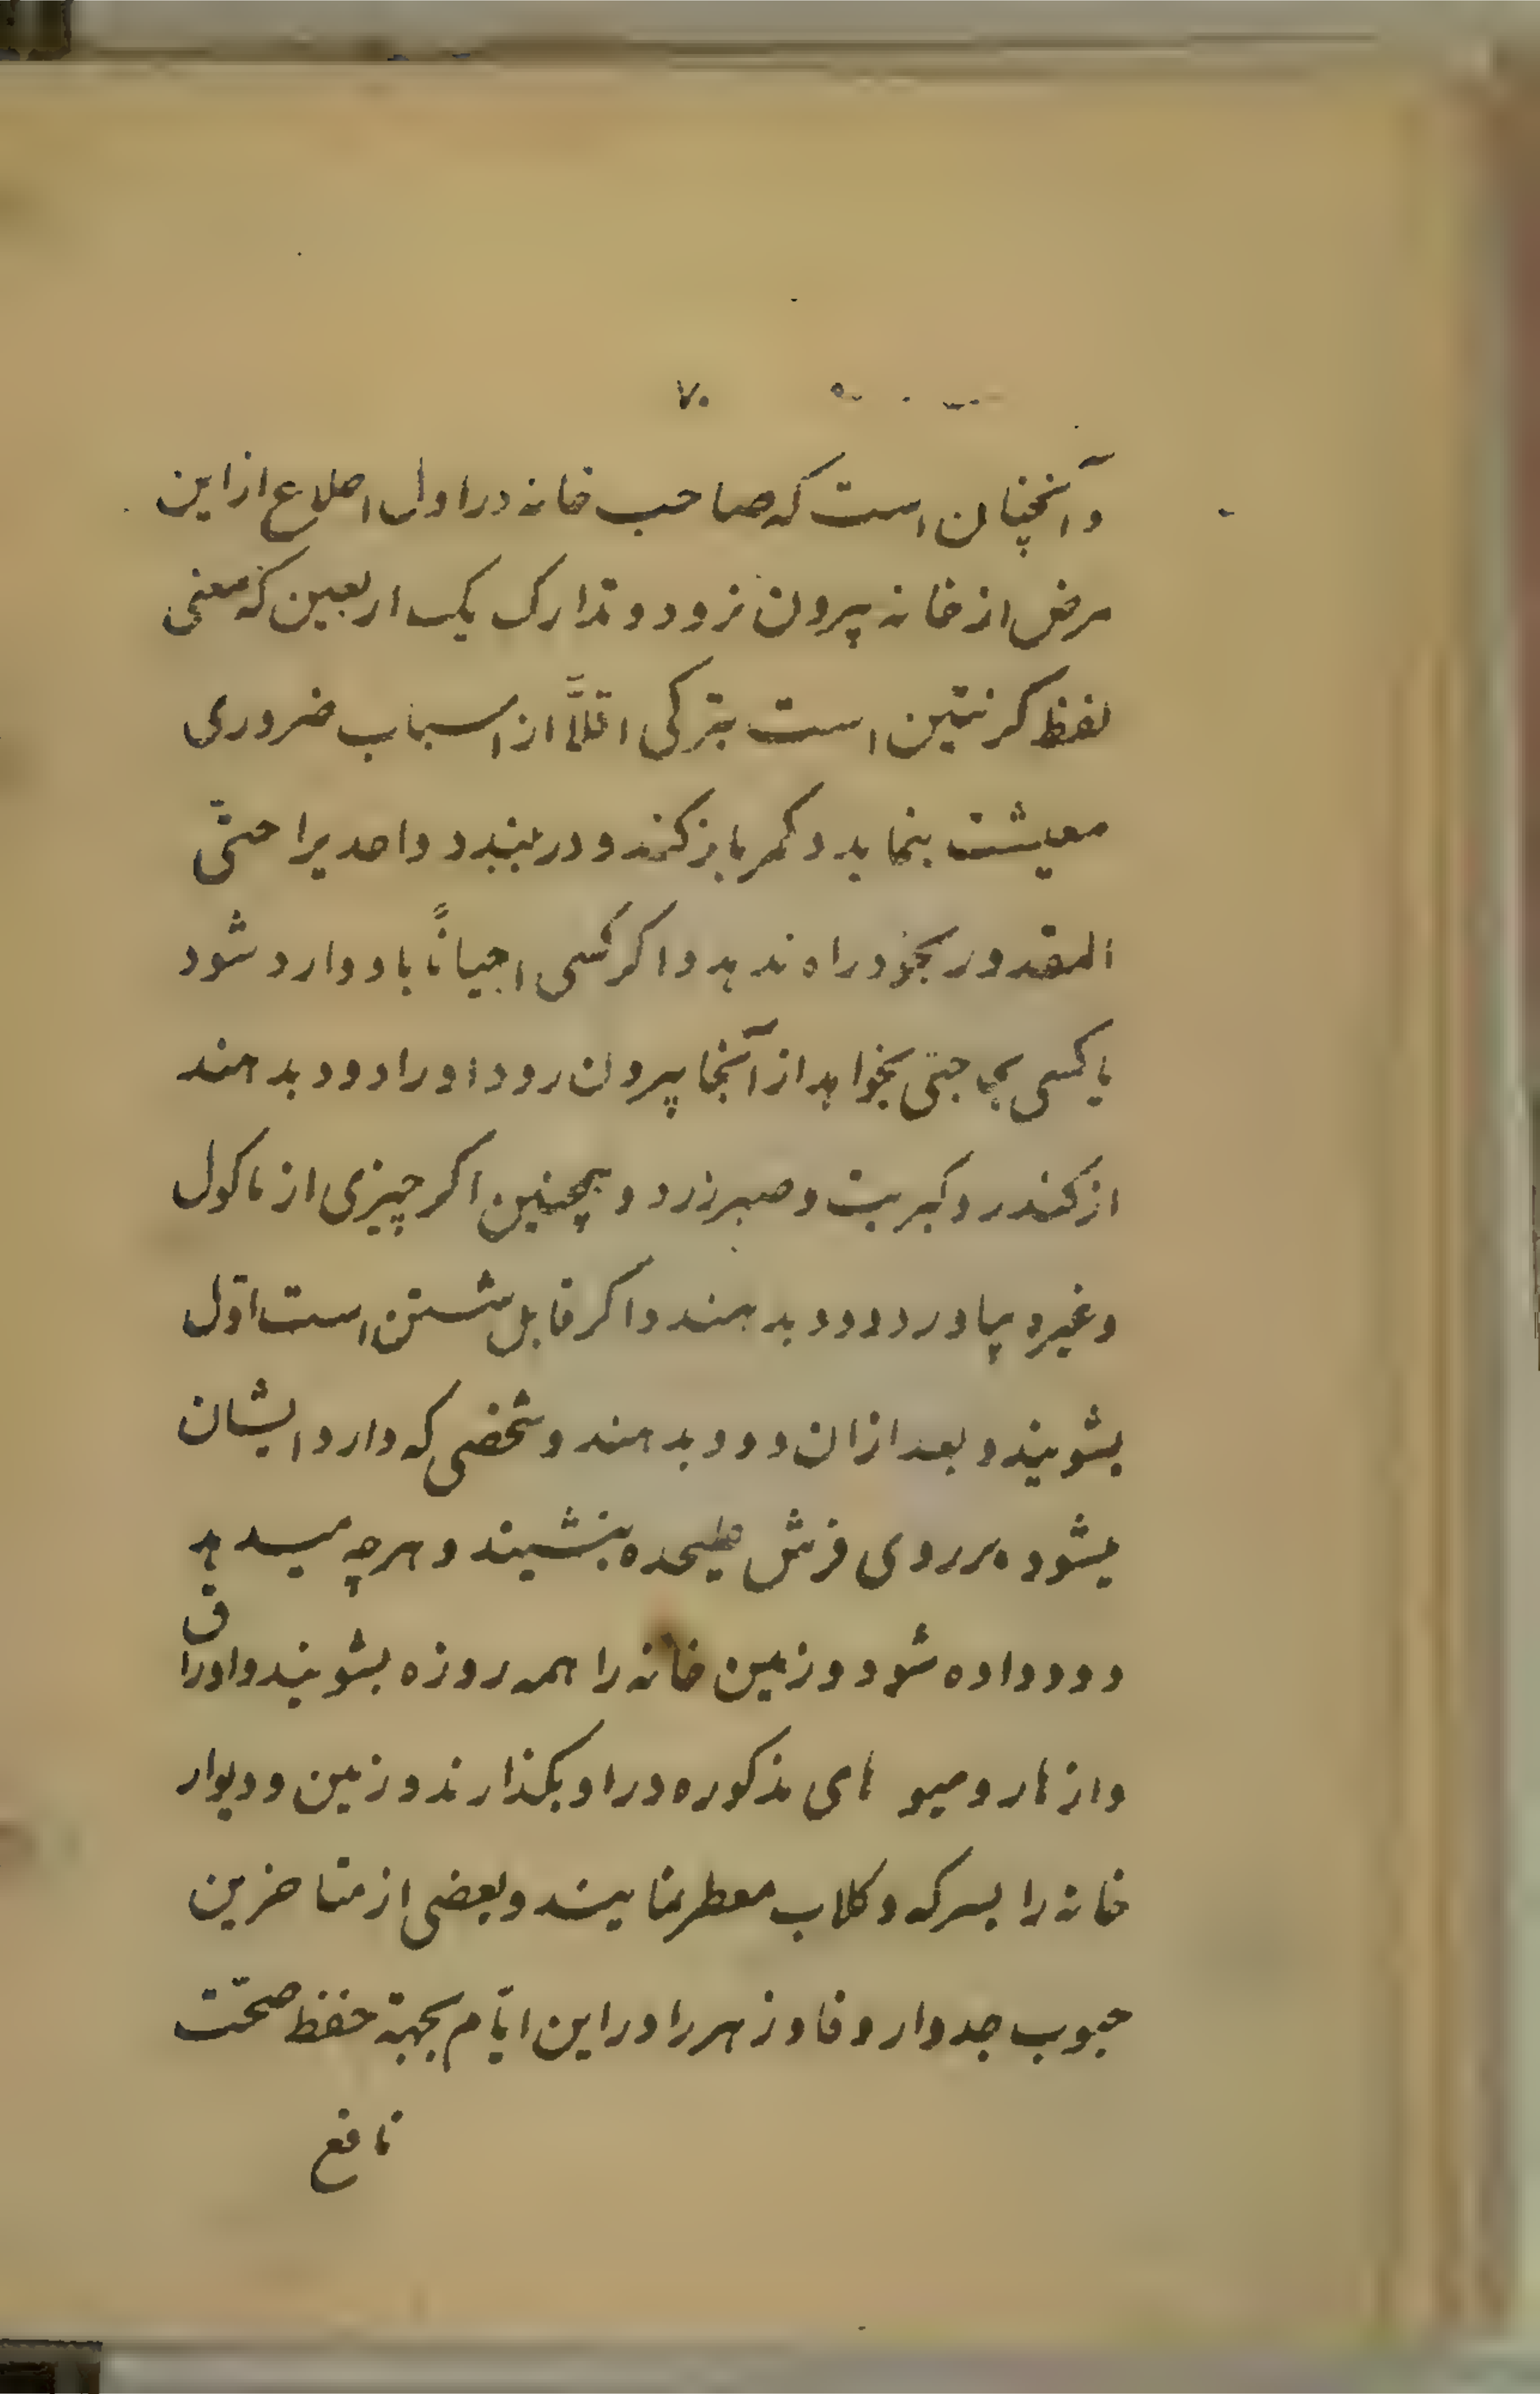 ۷۰
و آنچنان است که صاحب خانه در اول اطلاع از این
مرض از خانه بیرون نرود و تدارک یک اربعین که معنی
لفظ کرنتین است بترکی اقلاً از اسباب ضروری
معیشت بنماید و کمر باز کند و در ببندد و احدیرا حتی
المقدور بخود راه ندهد و اکر کسی احیاناً باو وارد شود
یا کسی بحاجتی بخواهد از آنجا بیرون رود او را دود بدهند
از کندر و کبریت و صبر زرد و همچنین اکر چیزی از ماکول
و غیره بیاورد دود بدهند و اکر قابل شستن است اوّل
بشویند و بعد از ان دود بدهند و شخصی که وارد ایشان
میشود بر روی فرش علیحده بنشیند و هر چه میدهد
دود داده شود و زمین خانه را همه روزه بشویند و اوراق
و ازهار و میو های مذکوره در او بکذارند و زمین و دیوار
خانه را بسرکه و کلاب معطر نمایند و بعضی از متاخرین
حبوب جدوار و فادزهر را در این ایّام بجهة حفظ صحّت
نافع